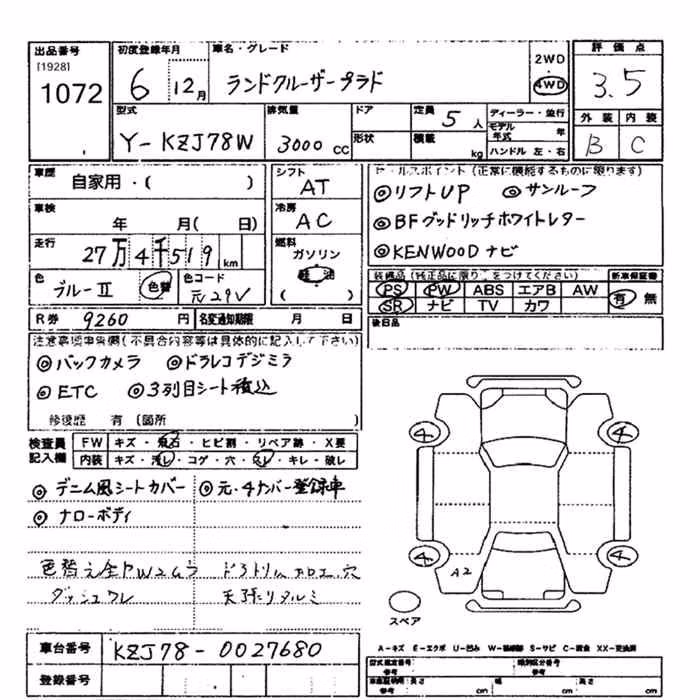 出品番号
[1928]
1072
初度登録年月
6 12月
車名・グレード
ランドクルーザープラド
2WD
4WD
評価点
3.5
外装 内装
B C
型式
Y-KZJ78W
排気量
3000 CC
ドア
形状
定員 5人
積載 kg
ディーラー・並行
モデル年式 年
ハンドル 左・右
車歴
自家用・( )
車検
年 月( 日)
走行
27万4千519km
色
ブルーII 色替
色コード
元29V
シフト
AT
冷房
AC
燃料
ガソリン
軽油
( )
セールスポイント(正常に機能するものに限ります)
◎リフトUP ◎サンルーフ
◎BFグッドリッチホワイトレター
◎KENWOODナビ
装備品(純正品に限り○をつけてください)
PS PW ABS エアB AW
SR ナビ TV カワ
新車保証書
有 無
R券 9260円
名変通知期限 月 日
後日品
注意事項申告欄(不具合内容等は具体的に記入して下さい)
◎バックカメラ ◎ドラレコデジミラ
◎ETC ◎3列目シート積込
修復歴 有(箇所 )
検査員記入欄
FW キズ・飛石・ヒビ割・リペア跡・X要
内装 キズ・汚レ・コゲ・穴・スレ・キレ・破レ
◎デニム風シートカバー ◎元・4ナンバー登録車
◎ナローボディ
ダッシュワレ
4 4
4 4
A2
スペア
車台番号 KZJ78-0027680
登録番号
A-キズ E-エクボ U-凹み S-サビ C-腐食 XX-交換済
型式指定番号 参考
類別区分番号 参考
長さ cm 幅 cm 高さ cm